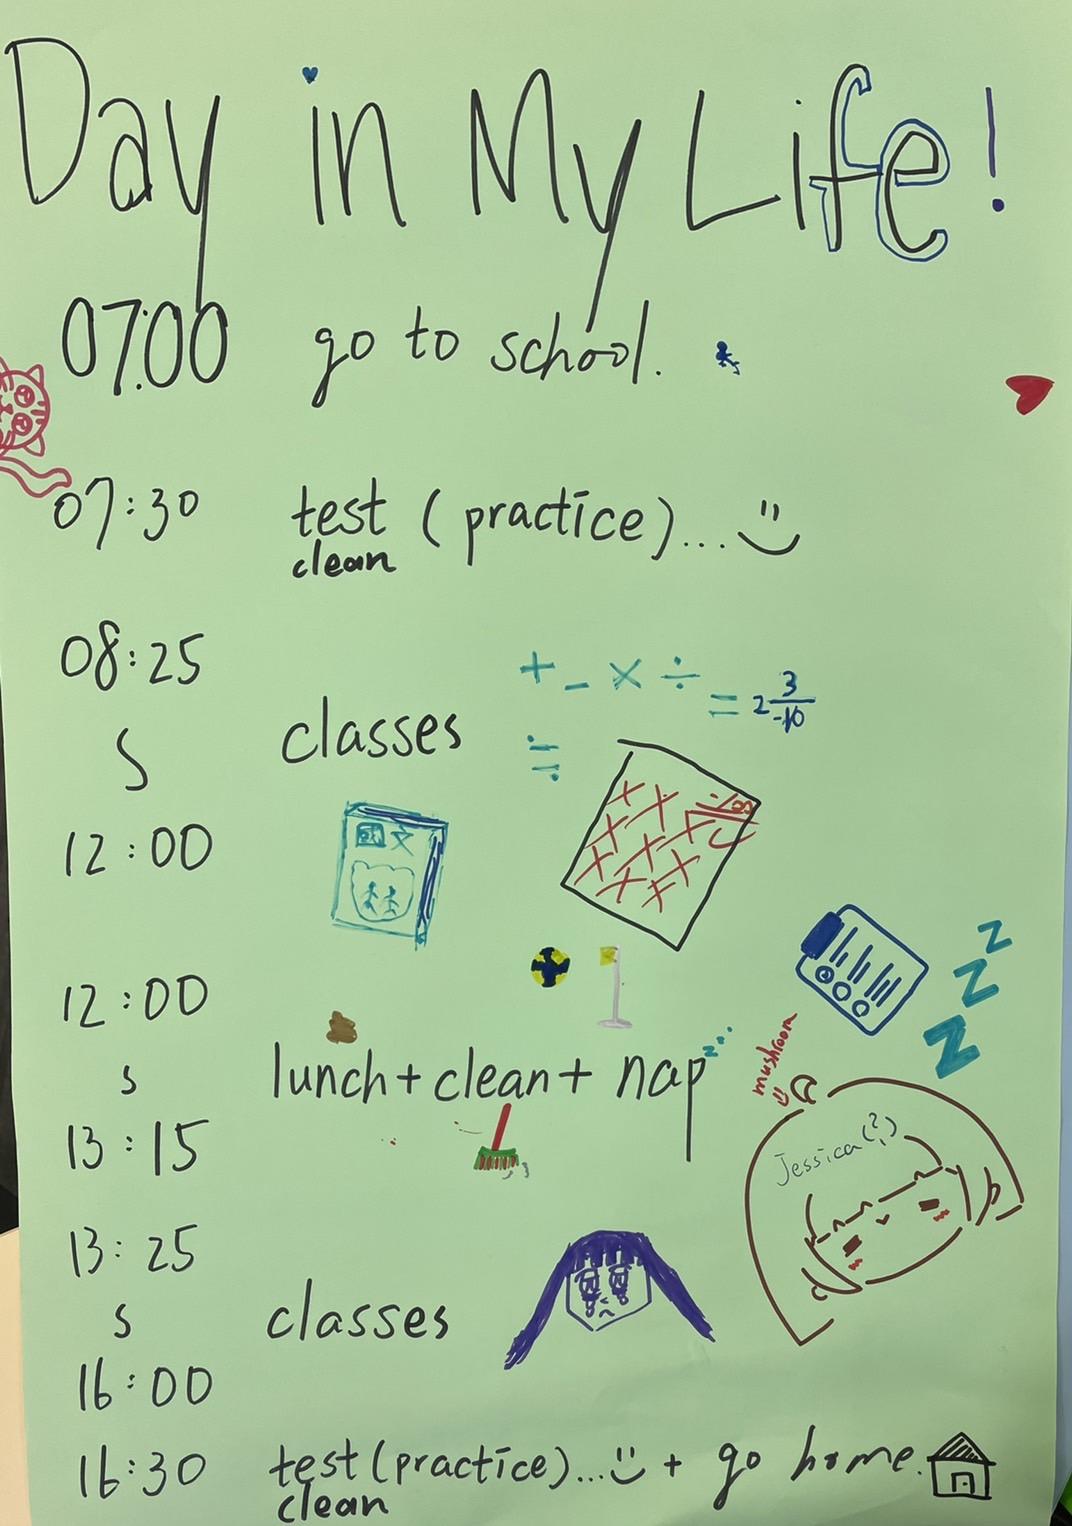 Day in My Life!
07:00 go to school.
07:30 test (practice)...
clean
08:25
S
classes
+ - × ÷ = 2 3/-10
÷
12:00
国文
12:00
s
lunch+clean+ nap z...
zzz
mushroom
13:15
Jessica(?)
13:25
s
classes
16:00
16:30 test(practice)... + go home.
clean